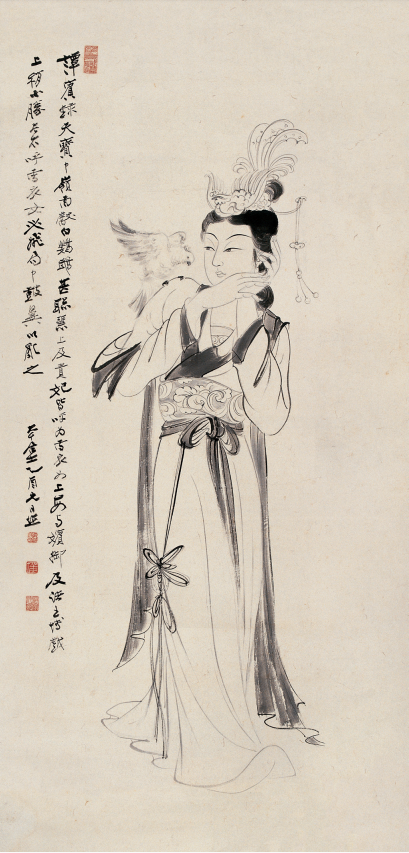 譚賓錄天寶中嶺南獻白鸚鵡甚聰慧上及貴妃皆呼為雪衣女上每與嬪御及諸王博戲
上稍不勝左右呼雪衣女必飛局中鼓翼以亂之